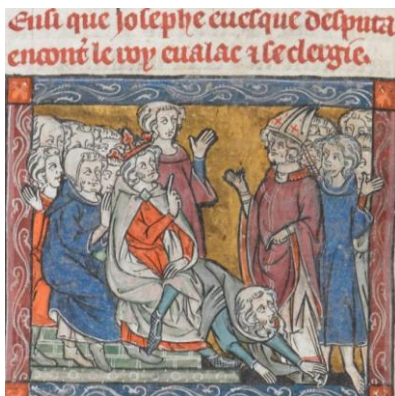 Ensi que Josephe euesque desputa
encont̾ le roy eualac ⁊ se clergie.